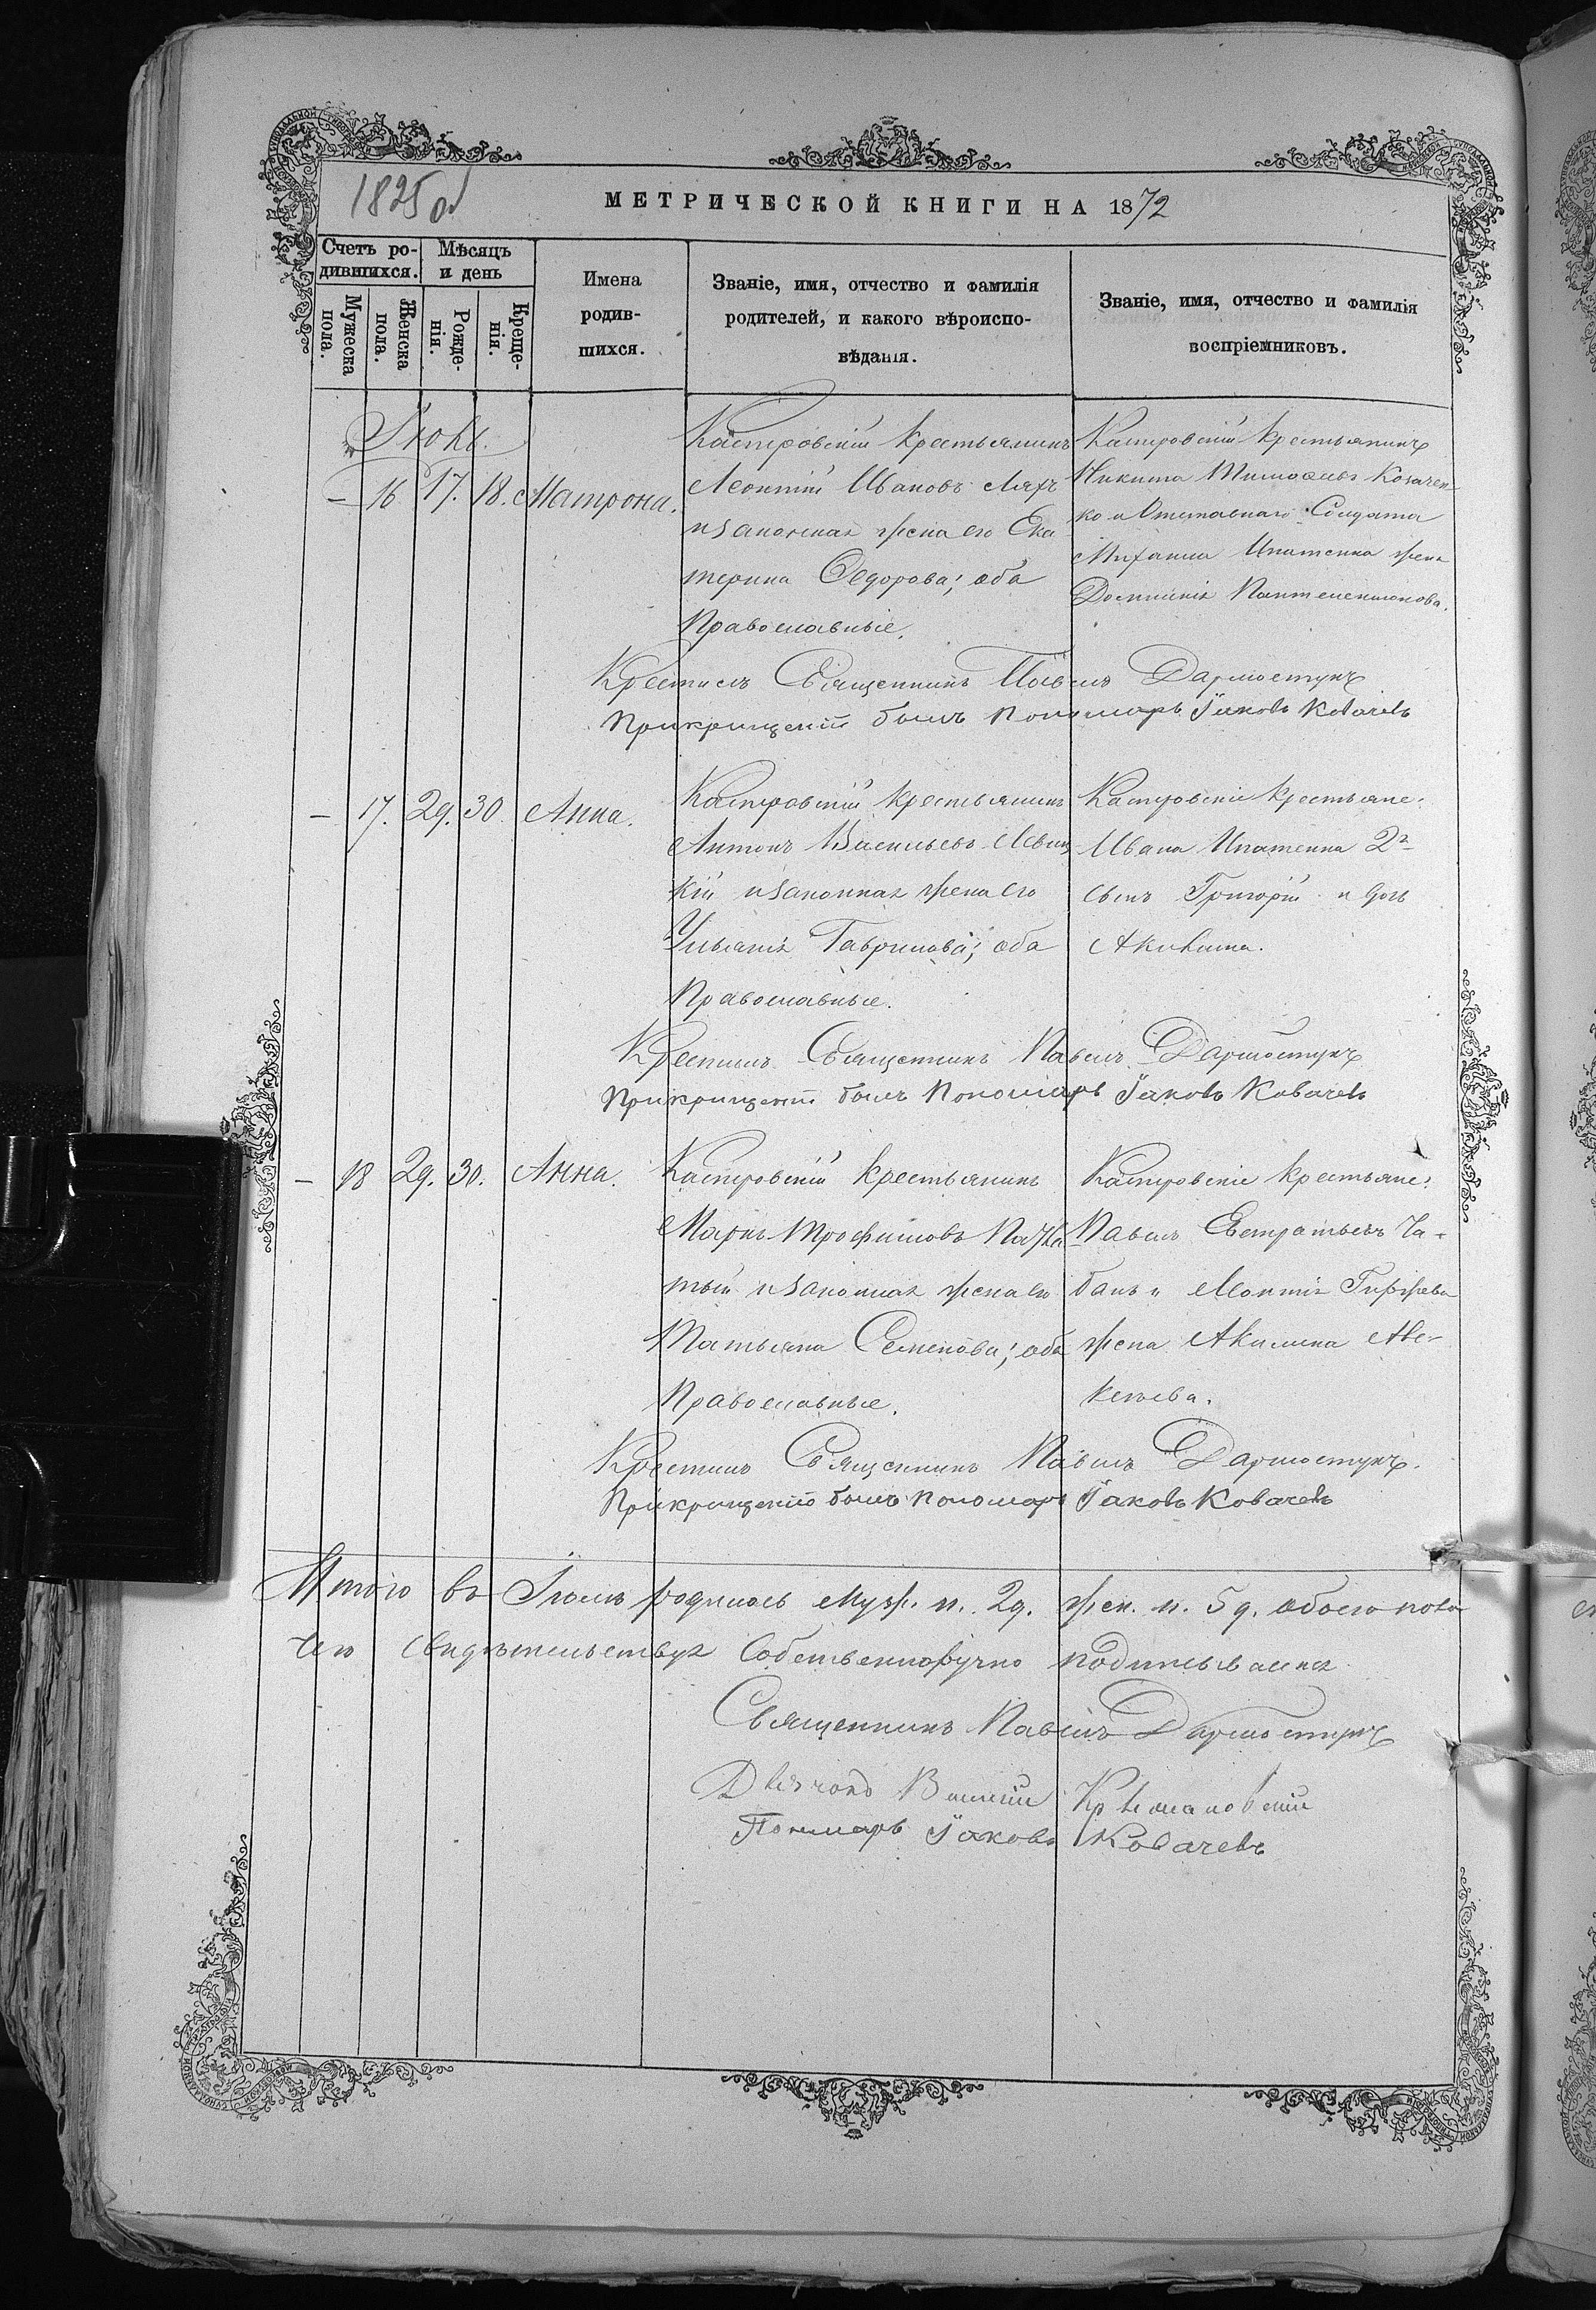 1825 об
МЕТРИЧЕСКОЙ КНИГИ НА 1872
Счетъ ро-
дившихся.
Мѣсяцъ
и день
Мужеска
пола.
Женска
пола.
Рожде-
нія.
Креще-
нія.
Имена
родив-
шихся.
Званіе, имя, отчество и фамилія
родителей, и какого вѣроиспо-
вѣданія.
Званіе, имя, отчество и фамилія
воспріемниковъ.
Іюль.
– 16 17. 18. Матрона.
Кастровскій крестьянинъ
Леонтій Ивановъ Ляхъ
и законная жена его Ека
терина Ѳедорова; оба
Православные.
Кастровскій крестьянинъ
Никита Тимоѳеевъ Козачен-
ко и Отставнаго Солдата
Михаила Ипатенка жена
Домникія Пантелеимонова.
Крестилъ Священникъ Павелъ Дармостукъ
При крищеніи былъ Пономарь Іаковъ Ковачевъ
– 17. 29. 30 Анна.
Кастровскій крестьянинъ
Антонъ Васильевъ Левиц
кій и законная жена его
Ульянія Гаврилова; оба
Православные.
Кастровскіе крестьяне:
Ивана Ипатенка 2го
сынъ Григорій и дочь
Акилина.
Крестилъ Священникъ Павелъ Дармостукъ
При крищеніи былъ Пономарь Іаковъ Ковачевъ
– 18 29. 30. Анна.
Кастровскій крестьянинъ
Маркъ Трофимовъ
тый и законная жена его
Татьяна Семенова; оба
Православные.
Кастровскіе крестьяне:
Павелъ Евстратьевъ Ча-
банъ и Леонтія
жена Акилина Аве-
Крестилъ Священникъ Павелъ Дармостукъ.
При крищеніи былъ Пономарь Іаковъ Ковачевъ
Итого въ Іюлѣ родилось муж. п. 2д. жен. п. 5 д. обоего пола
свидѣтельствуя собственноручно подписываемся
Священникъ Павелъ Дармостукъ
Дьячокъ
Пономарь Іаковъ Ковачевъ